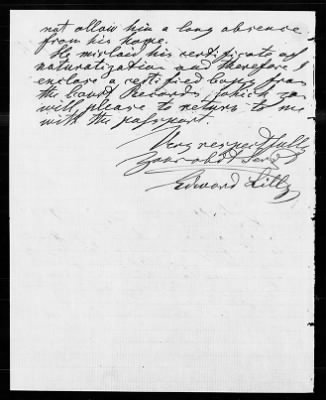 not allow him a long absence
from his home.
He mislaid his certificate of
naturalization and therefore I
enclose a certified copy from
the Court Records, which you
will please to return to me
with the passport.
Very respectfully
Your obdt Servt
Edward Lilly